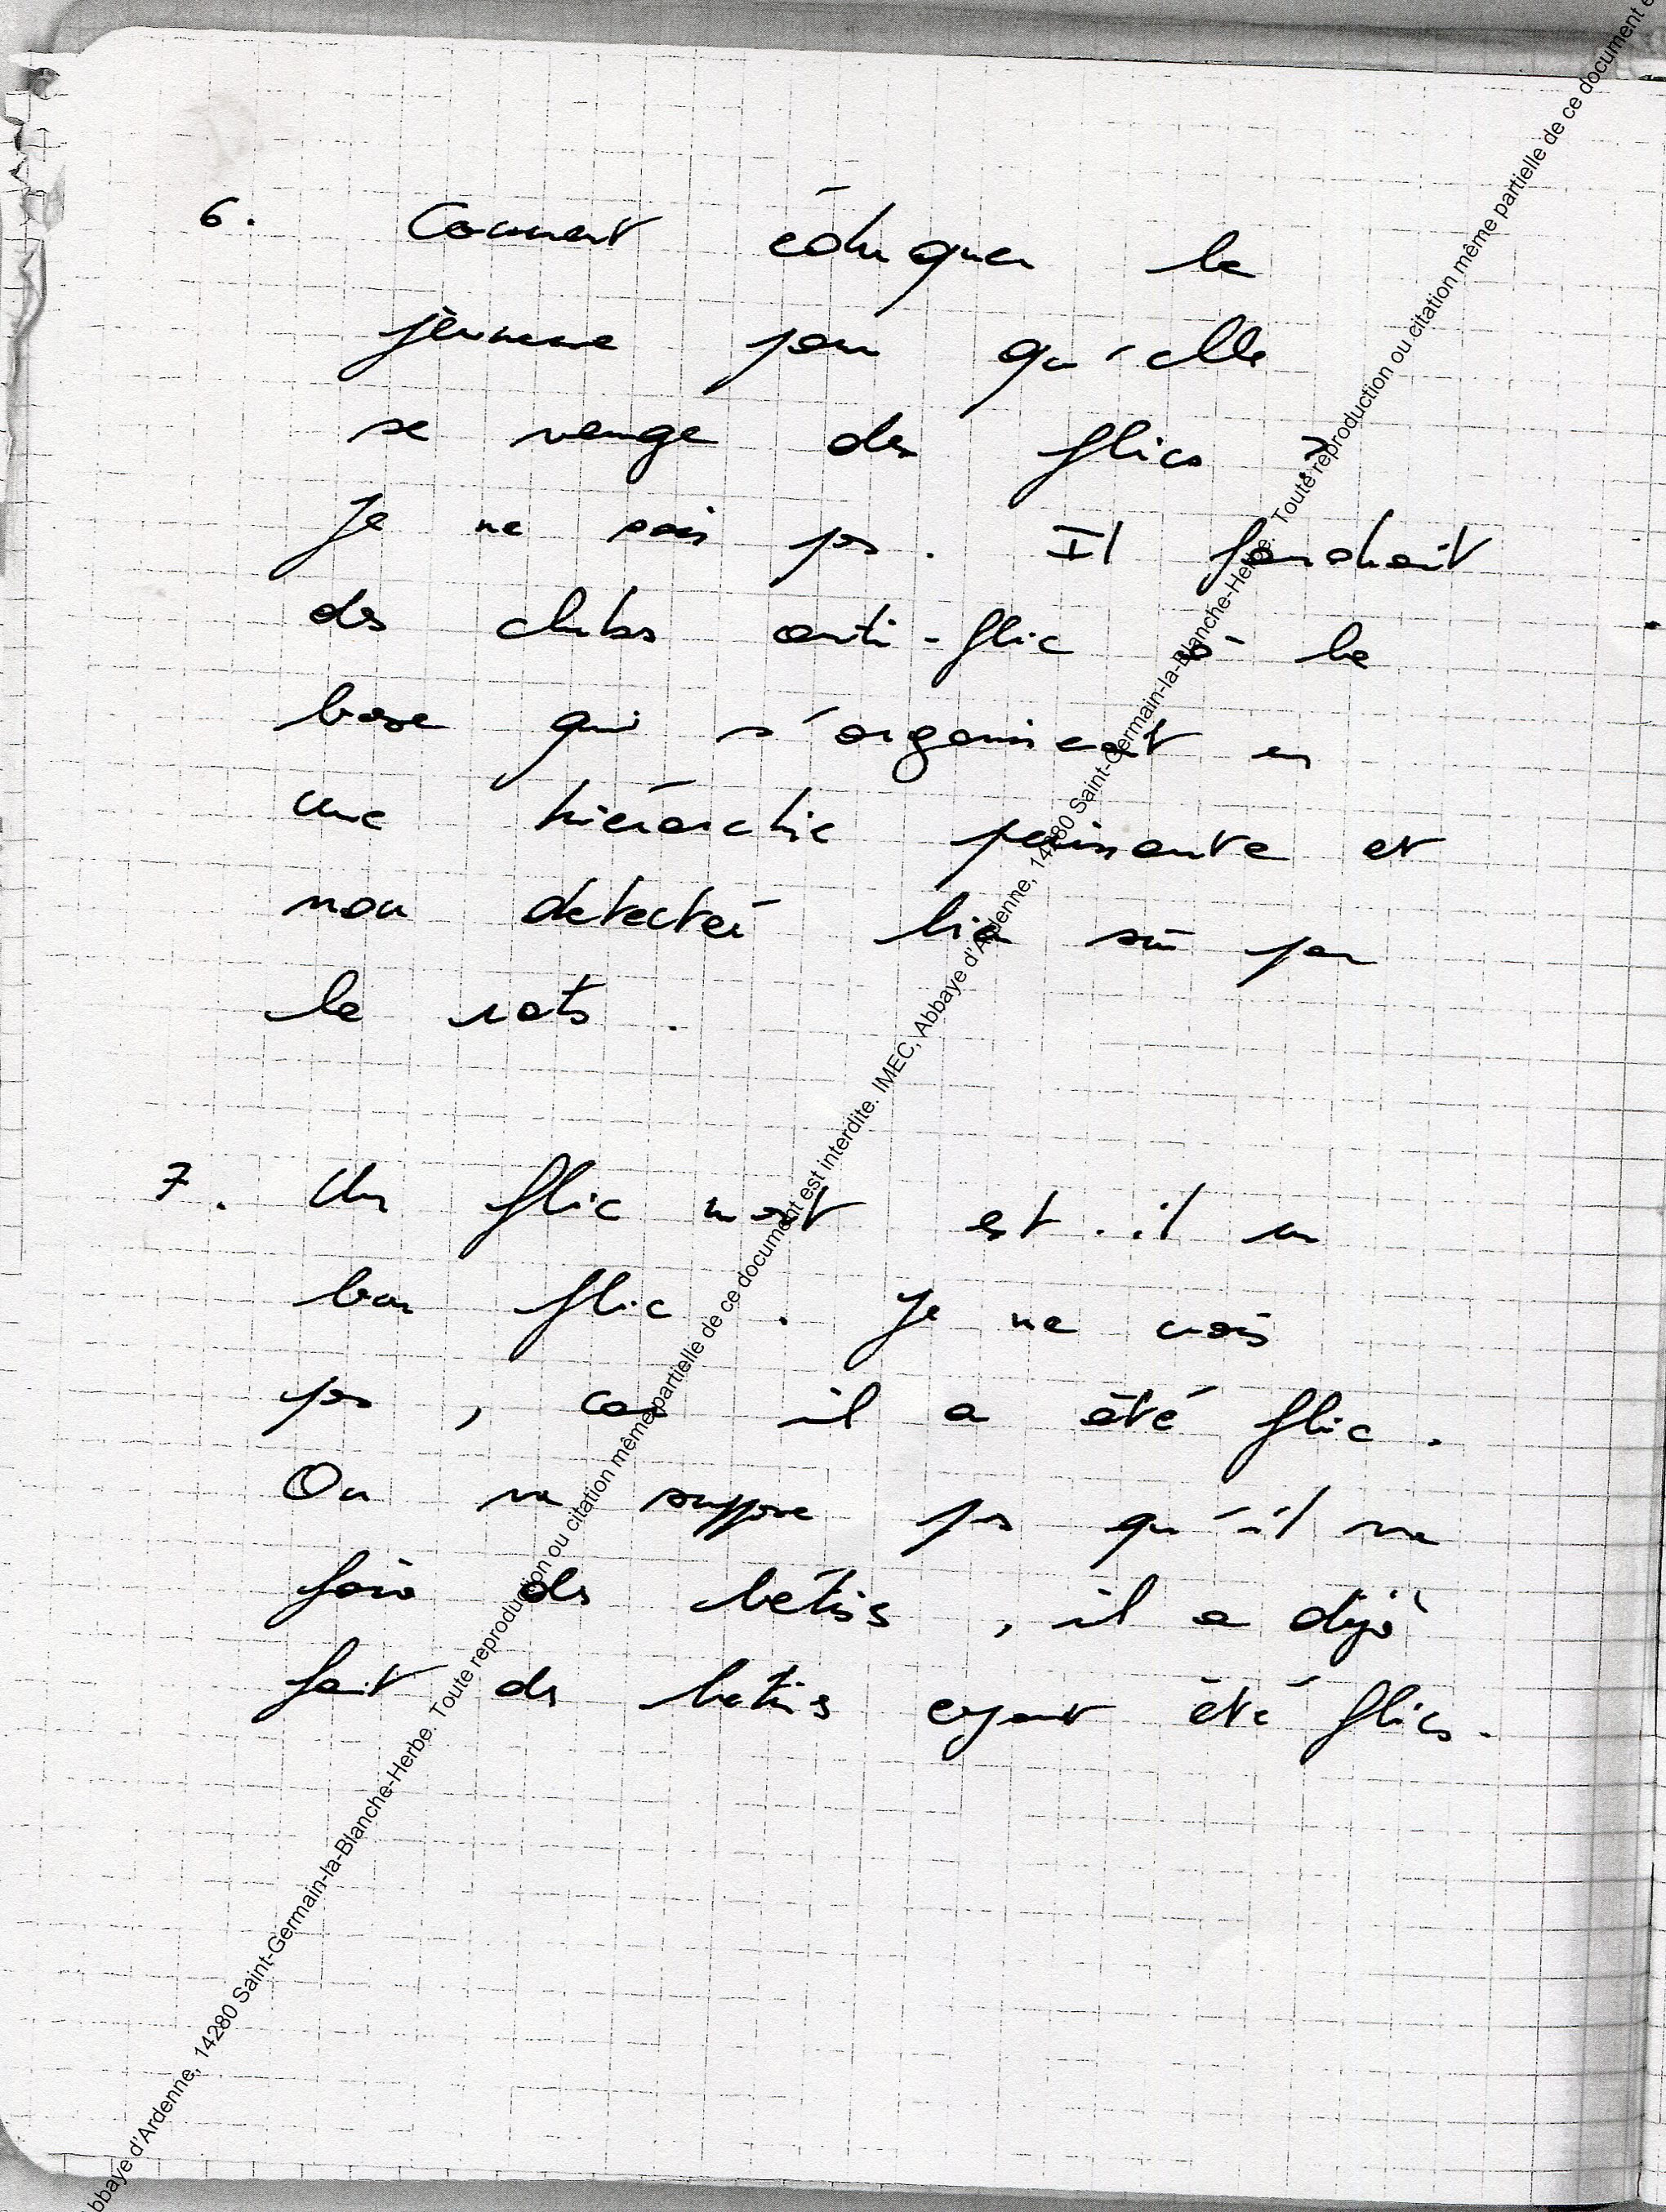 6. Comment éduquer la
jeunesse pour qu'elle
se venge des flics ?
Je ne sais pas. Il faudrait
des clubs anti-flic à la
base qui s'organisent en
une hiérarchie puissante et
non detecteé bien sûr par
les rats.
7. Un flic mort est-il un
bon flic. Je ne crois
pas, car il a été flic.
On ne suppose pas qu'il va
faire des bêtises, il a déjà
fait des bêtises ayant été flics.
Abbaye d'Ardenne, 14280 Saint-Germain-la-Blanche-Herbe. Toute reproduction ou citation même partielle de ce document est interdite. IMEC, Abbaye d'Ardenne, 14280 Saint-Germain-la-Blanche-Herbe. Toute reproduction ou citation même partielle de ce document e